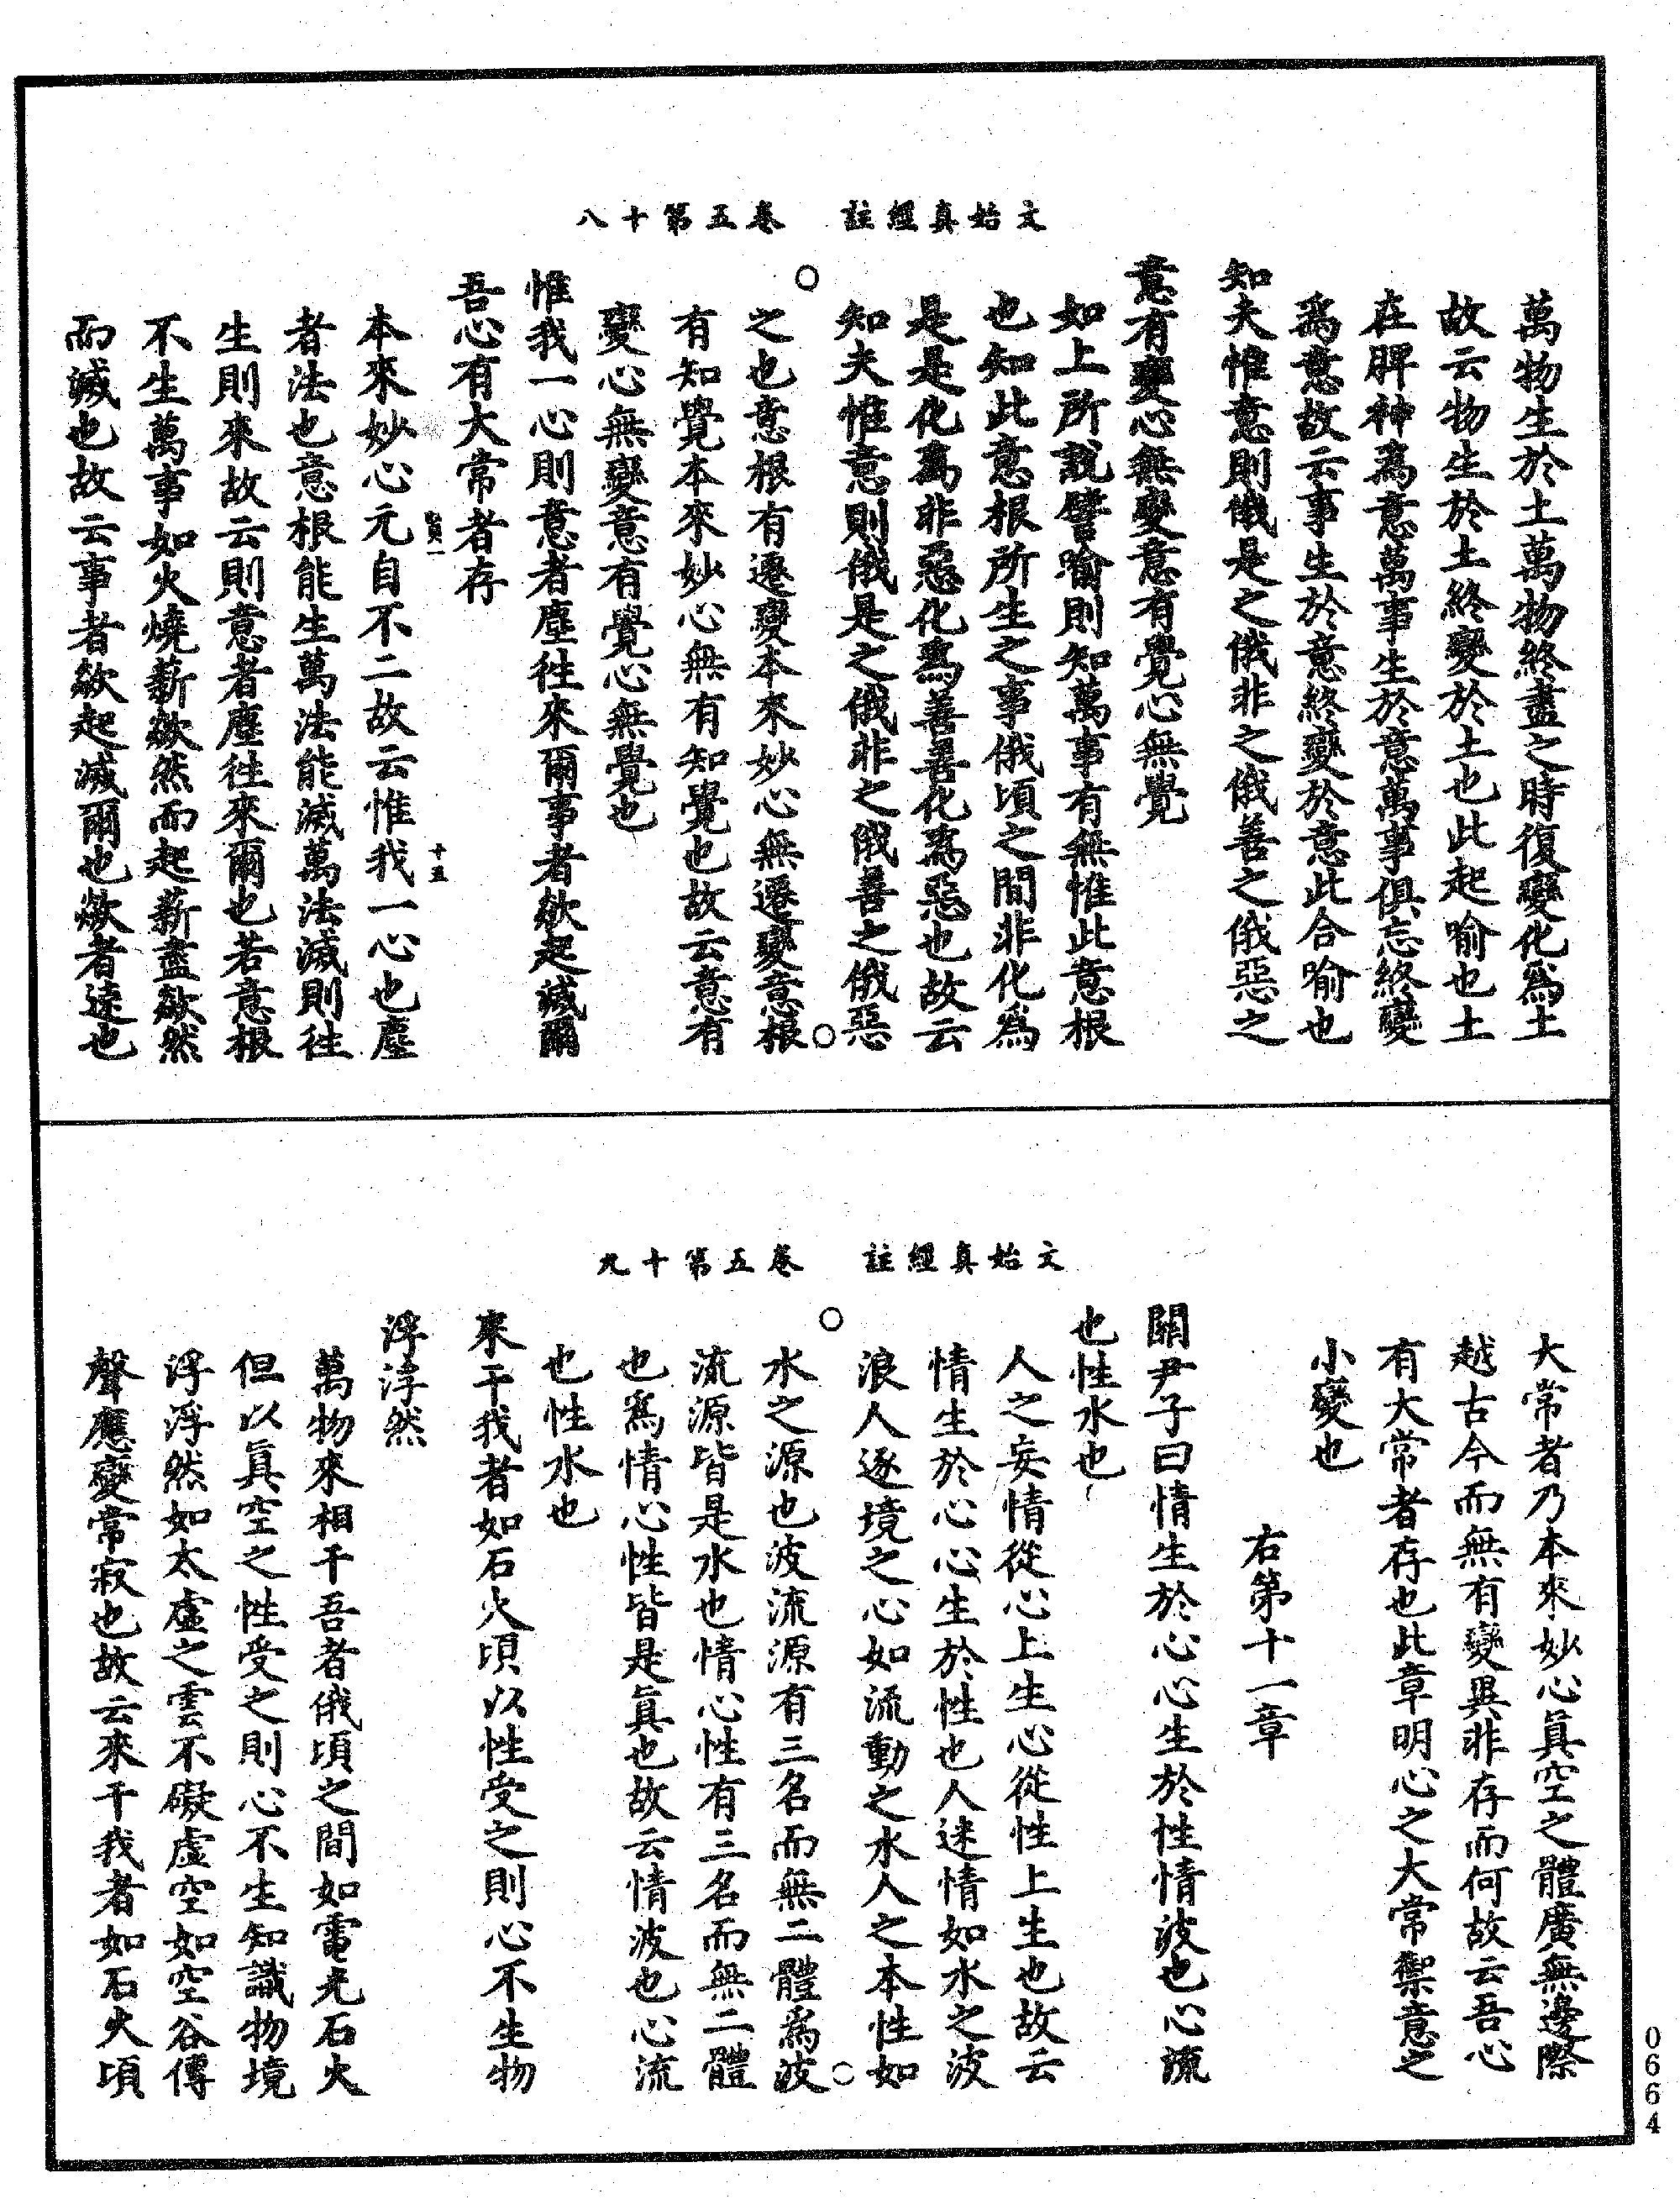 文始真經註　卷五第十八
萬物生於土萬物終盡之時復變化爲土
故云物生於土終變於土也此起喻也土
在脾神爲意萬事生於意萬事俱忘終變
爲意故云事生於意終變於意此合喻也
知夫惟意則俄是之俄非之俄善之俄惡之
意有變心無變意有覺心無覺
如上所說譬喻則知萬事有無惟此意根
也知此意根所生之事俄頃之間非化爲
是是化爲非惡化爲善善化爲惡也故云
知夫惟意則俄是之俄非之俄善之俄惡
之也意根有遷變本來妙心無遷變意根
有知覺本來妙心無有知覺也故云意有
變心無變意有覺心無覺也
惟我一心則意者塵往來爾事者欻起滅爾
吾心有大常者存
十五
本來妙心元自不二故云惟我一心也塵
者法也意根能生萬法能滅萬法滅則往
生則來故云則意者塵往來爾也若意根
不生萬事如火燒薪欻然而起薪盡欻然
而滅也故云事者欻起滅爾也欻者速也
文始真經註　卷五第十九
大常者乃本來妙心眞空之體廣無邊際
越古今而無有變異非存而何故云吾心
有大常者存也此章明心之大常禦意之
小變也
右第十一章
關尹子曰情生於心心生於性情波也心流
也性水也
人之妄情從心上生心從性上生也故云
情生於心心生於性也人迷情如水之波
浪人逐境之心如流動之水人之本性如
水之源也波流源有三名而無二體爲波
流源皆是水也情心性有三名而無二體
也爲情心性皆是眞也故云情波也心流
也性水也
來干我者如石火頃以性受之則心不生物
浮浮然
萬物來相干吾者俄頃之間如電光石火
但以眞空之性受之則心不生知識物境
浮浮然如太虛之雲不礙虛空如空谷傳
聲應變常寂也故云來干我者如石火頃
0664